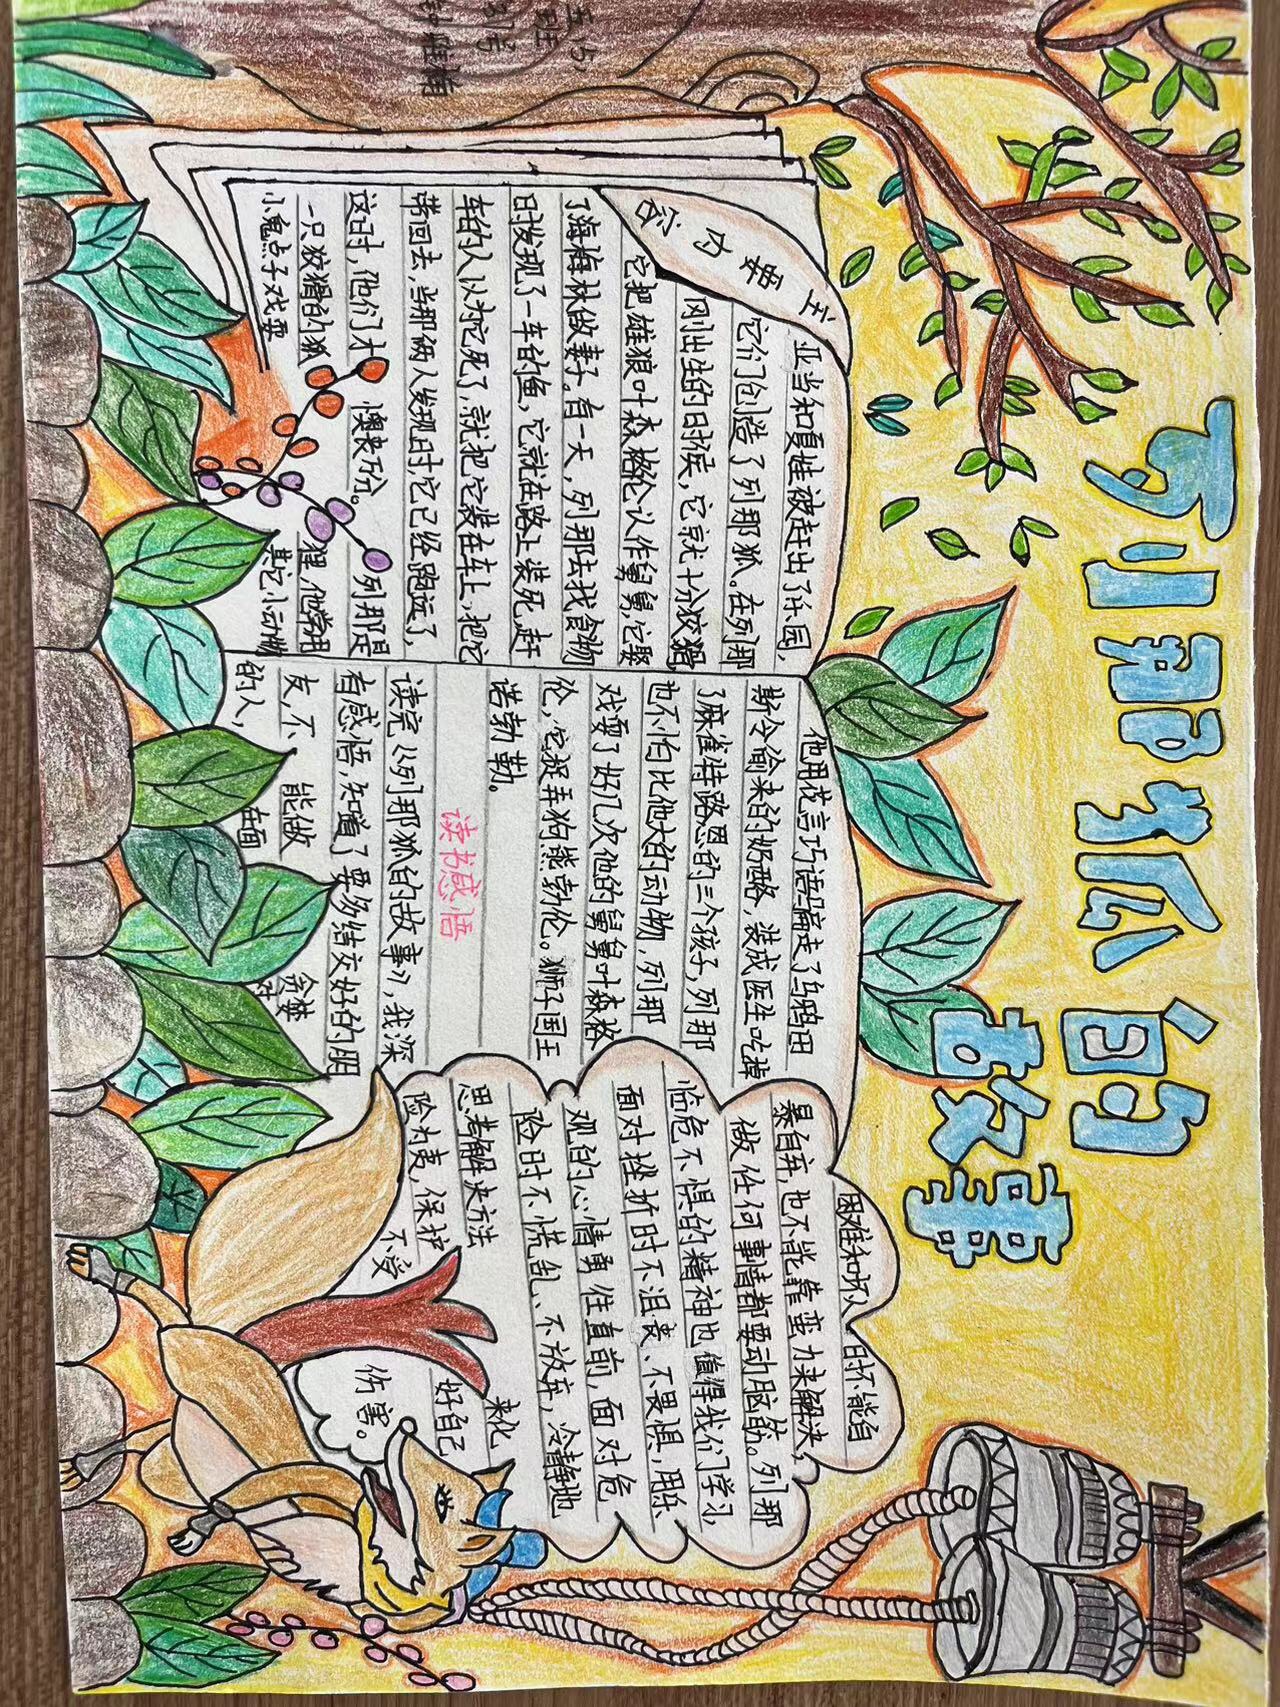 列那狐的
故事
五(5)
班
号
主要内容
亚当和夏娃被赶出了乐园,
它们创造了列那狐。在列那
刚出生的日时候,它就十分狡猾,
它把雄狼叶森格伦认作舅舅,它娶
了海梅林做妻子,有一天,列那去找食物
日时发现了一车的鱼,它就在路上装死,赶
车的人以为它死了,就把它装在车上,把它
带回去,当那俩人发现时,它已经跑远了,
这时,他们才懊丧万分。列那是
一只狡猾的狐狸,他常用
小鬼点子戏耍其它小动物
他用花言巧语骗走了乌鸦田
斯令偷来的奶酪,装成医生吃掉
了麻雀特路恩的三个孩子,列那
也不怕比他大的动物,列那
戏耍了好几次他的舅舅叶森格
伦,它捉弄狗熊勃伦。狮子国王
诺勃勒。
读书感悟
读完《列那狐的故事》,我深
有感悟,知道了要多结交好的朋
友,不能做贪婪
的人,在面对
困难和坏人时不能自
暴自弃,也不能靠蛮力来解决,
做任何事情都要动脑筋。列那
临危不惧的精神也值得我们学习,
面对挫折时不沮丧、不畏惧,用乐
观的心情勇往直前,面对危
险时不慌乱、不放弃,冷静地
思考解决方法来化
险为夷,保护好自己
不受伤害。